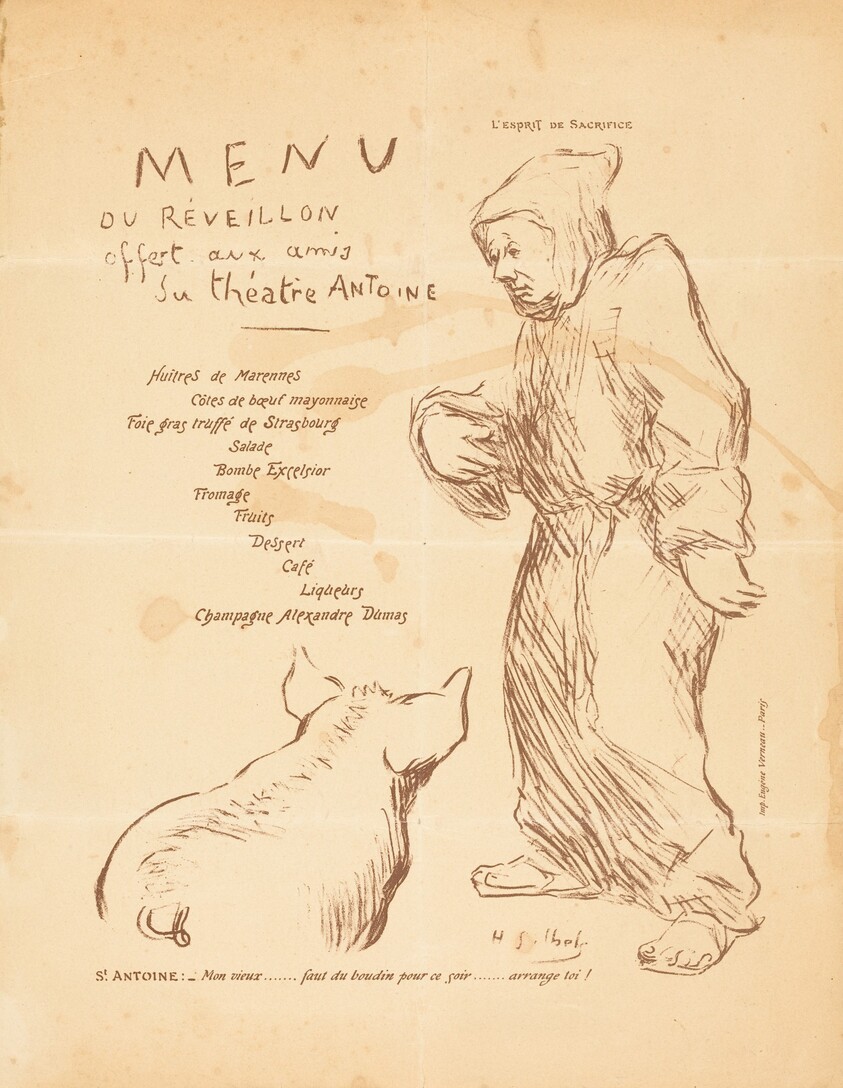 L'ESPRIT DE SACRIFICE
MENU
DU RÉVEILLON
offert aux amis
du théatre ANTOINE
Huîtres de Marennes
Côtes de bœuf mayonnaise
Foie gras truffé de Strasbourg
Salade
Bombe Excelsior
Fromage
Fruits
Dessert
Café
Liqueurs
Champagne Alexandre Dumas
Imp. Eugène Verneau - Paris
St. ANTOINE: _ Mon vieux ....... faut du boudin pour ce soir ....... arrange toi !